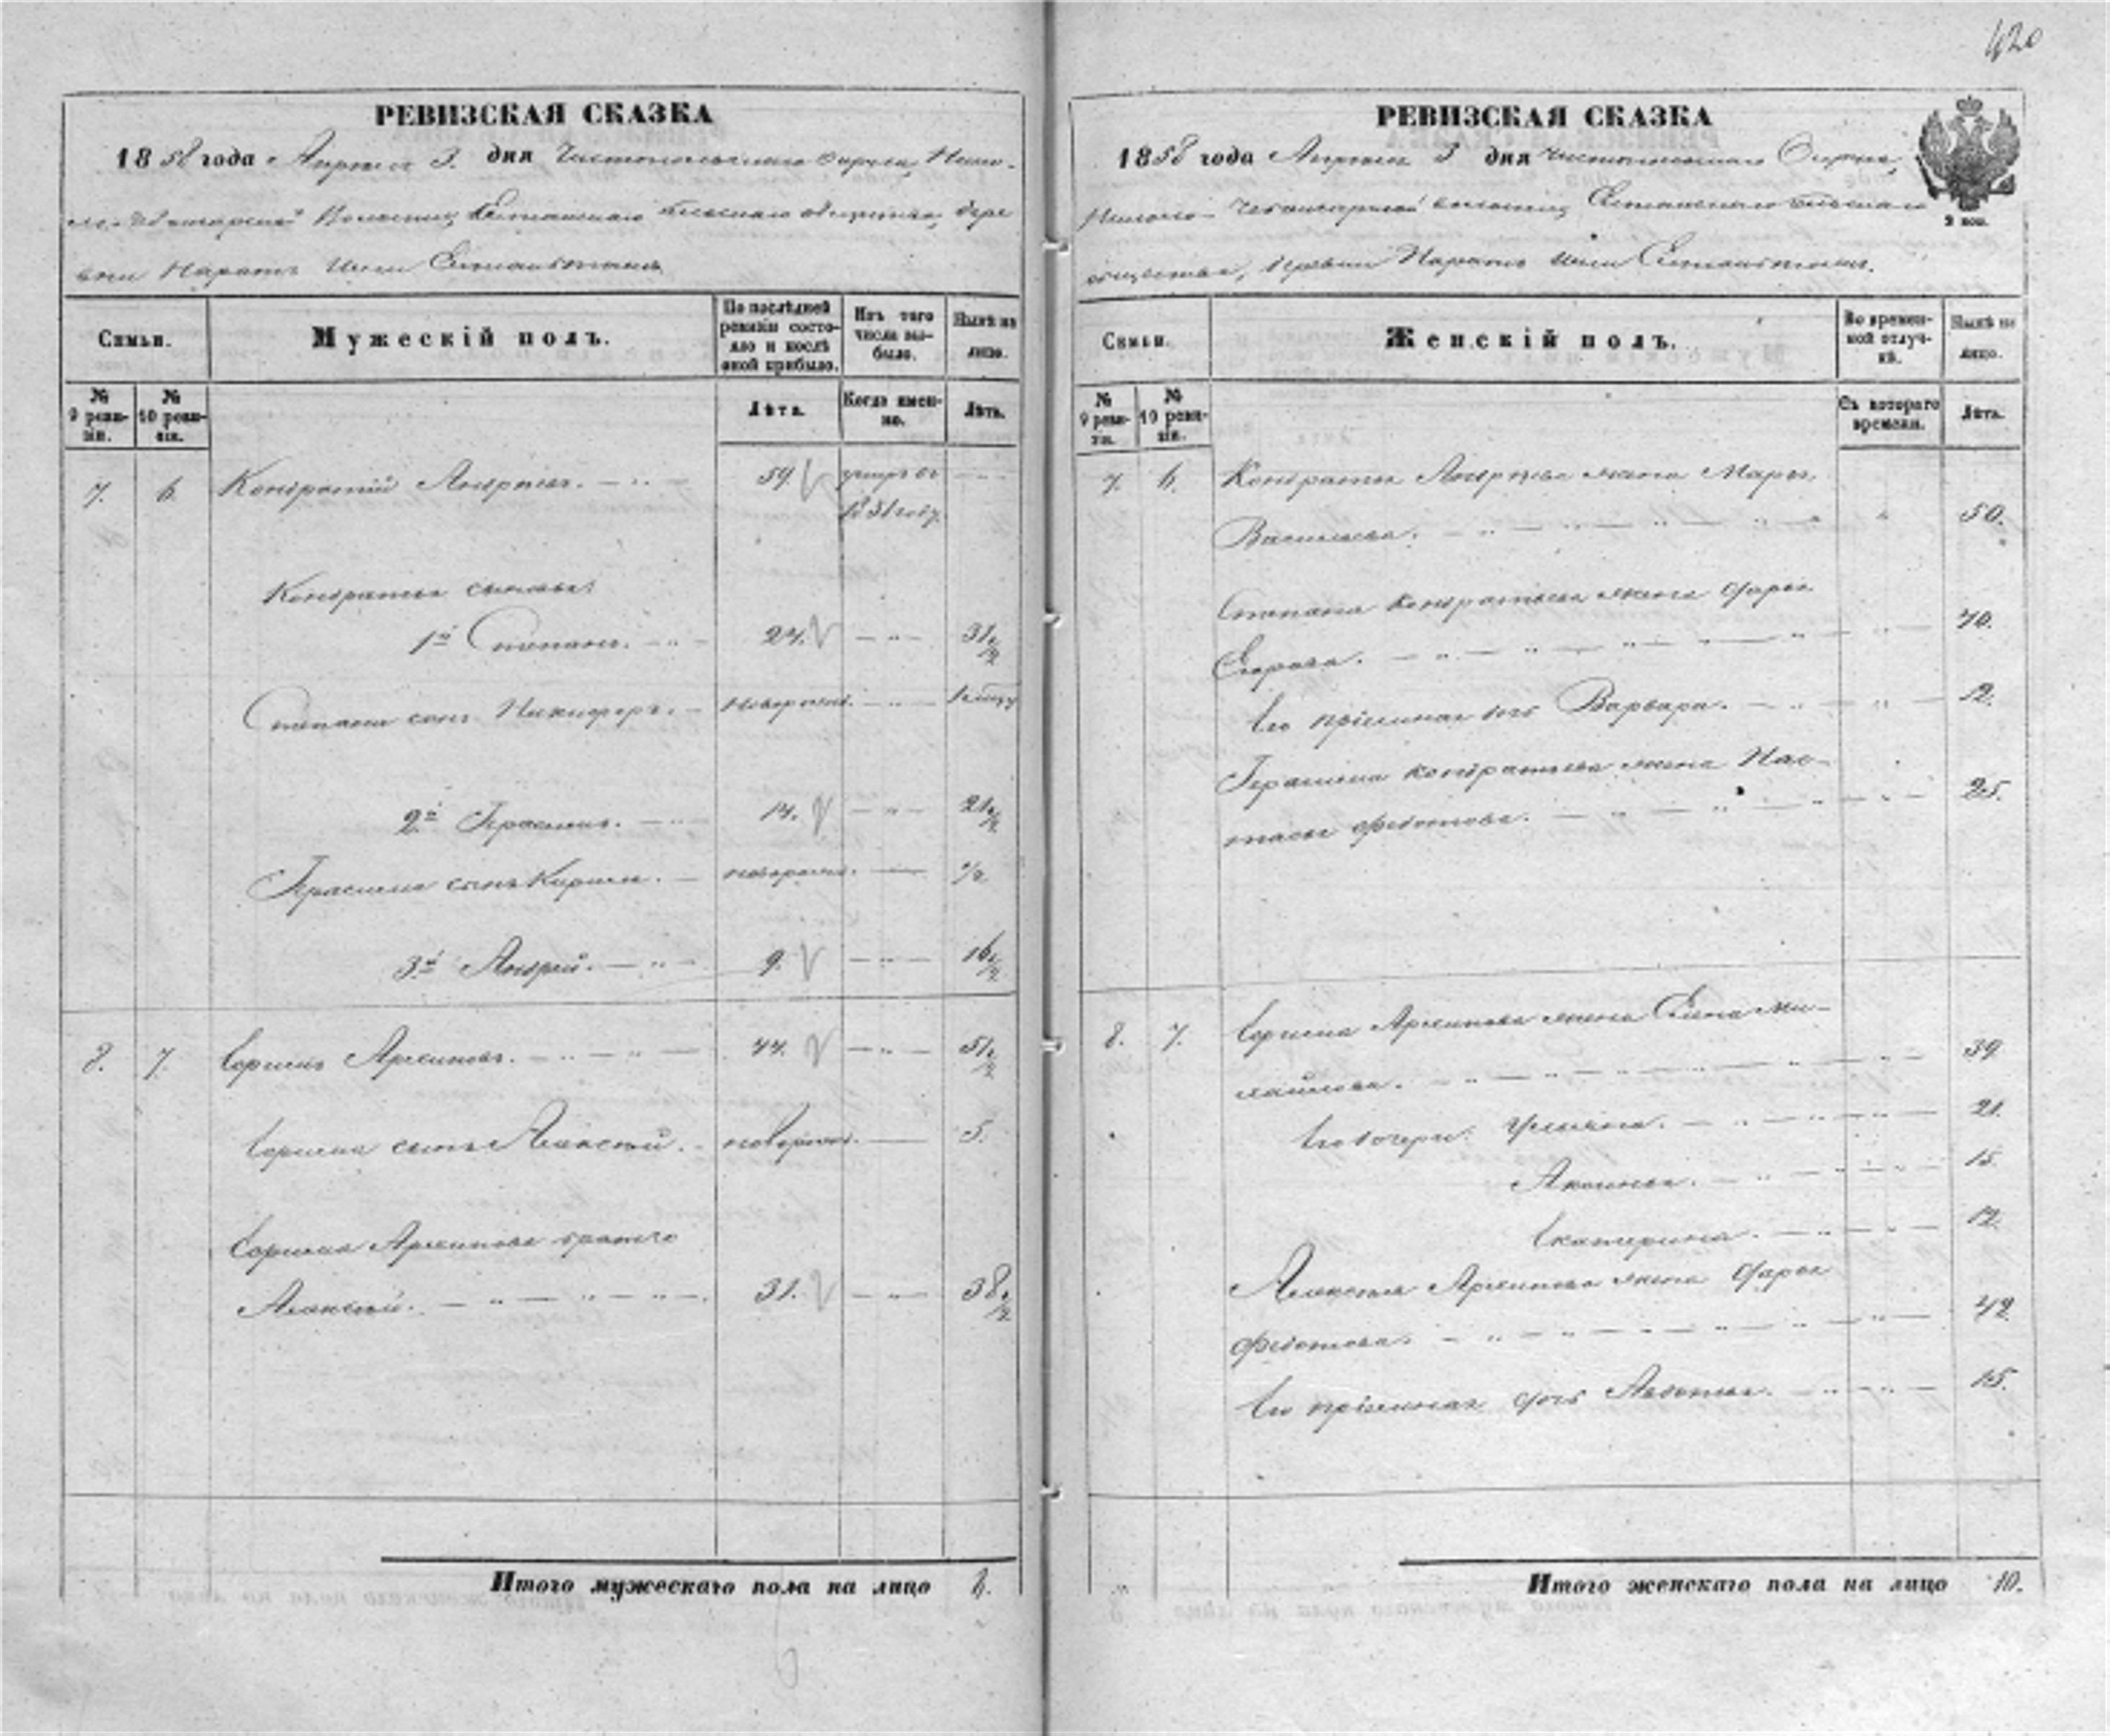 420
РЕВИЗСКАЯ СКАЗКА
1858 года Апреля 3. дня Чистопольскаго округа,
Волости, общества, дере
вни Наратъ
Семьи.
Мужескій полъ.
По послѣдней ревизіи состояло и послѣ оной прибыло.
Изъ того числа выбыло.
Нынѣ на лицо.
№ 9 ревизіи.
№ 10 ревизіи.
Лѣта.
Когда именно.
Лѣта.
7. 6. Кондратій Андреевъ. 59. умеръ въ
1851 году.
Кондратья сыновья:
1й Степанъ. 24. 31 1/2
Степана сынъ Никифоръ. новорожд.
2й Герасимъ. 14. 21 1/2
Герасима сынъ Кирилъ. новорожд. 1/2
3й Андрей. 9. 16 1/2
8. 7. Архиповъ. 44. 51 1/2
сынъ Алексѣй. новорожд. 5.
Архипова братъ
Алексѣй. 31. 38 1/2
Итого мужескаго пола на лицо 8.
РЕВИЗСКАЯ СКАЗКА
1858 года Апреля 3 дня Чистопольскаго Округа,
волости,
общества, деревни Наратъ
2 коп.
Семьи.
Женскій полъ.
Во временной отлучкѣ.
Нынѣ на лицо.
№ 9 ревизіи.
№ 10 ревизіи.
Съ котораго времени.
Лѣта.
7. 6. Кондратья Андреева жена Марья
Васильева. 50.
Степана Кондратьева жена Дарья
Егорова. 40.
Его пріемная дочь Варвара. 12.
Герасима Кондратьева жена Нас-
тасья Федотова. 25.
8. 7. Архипова жена Елена Ми-
хайлова. 39.
Его дочери: Ульяна. 21.
Аксинья. 15.
Екатерина. 12.
Алексѣя Архипова жена Дарья
Федотова. 42.
Его пріемная дочь Авдотья. 15.
Итого женскаго пола на лицо 10.